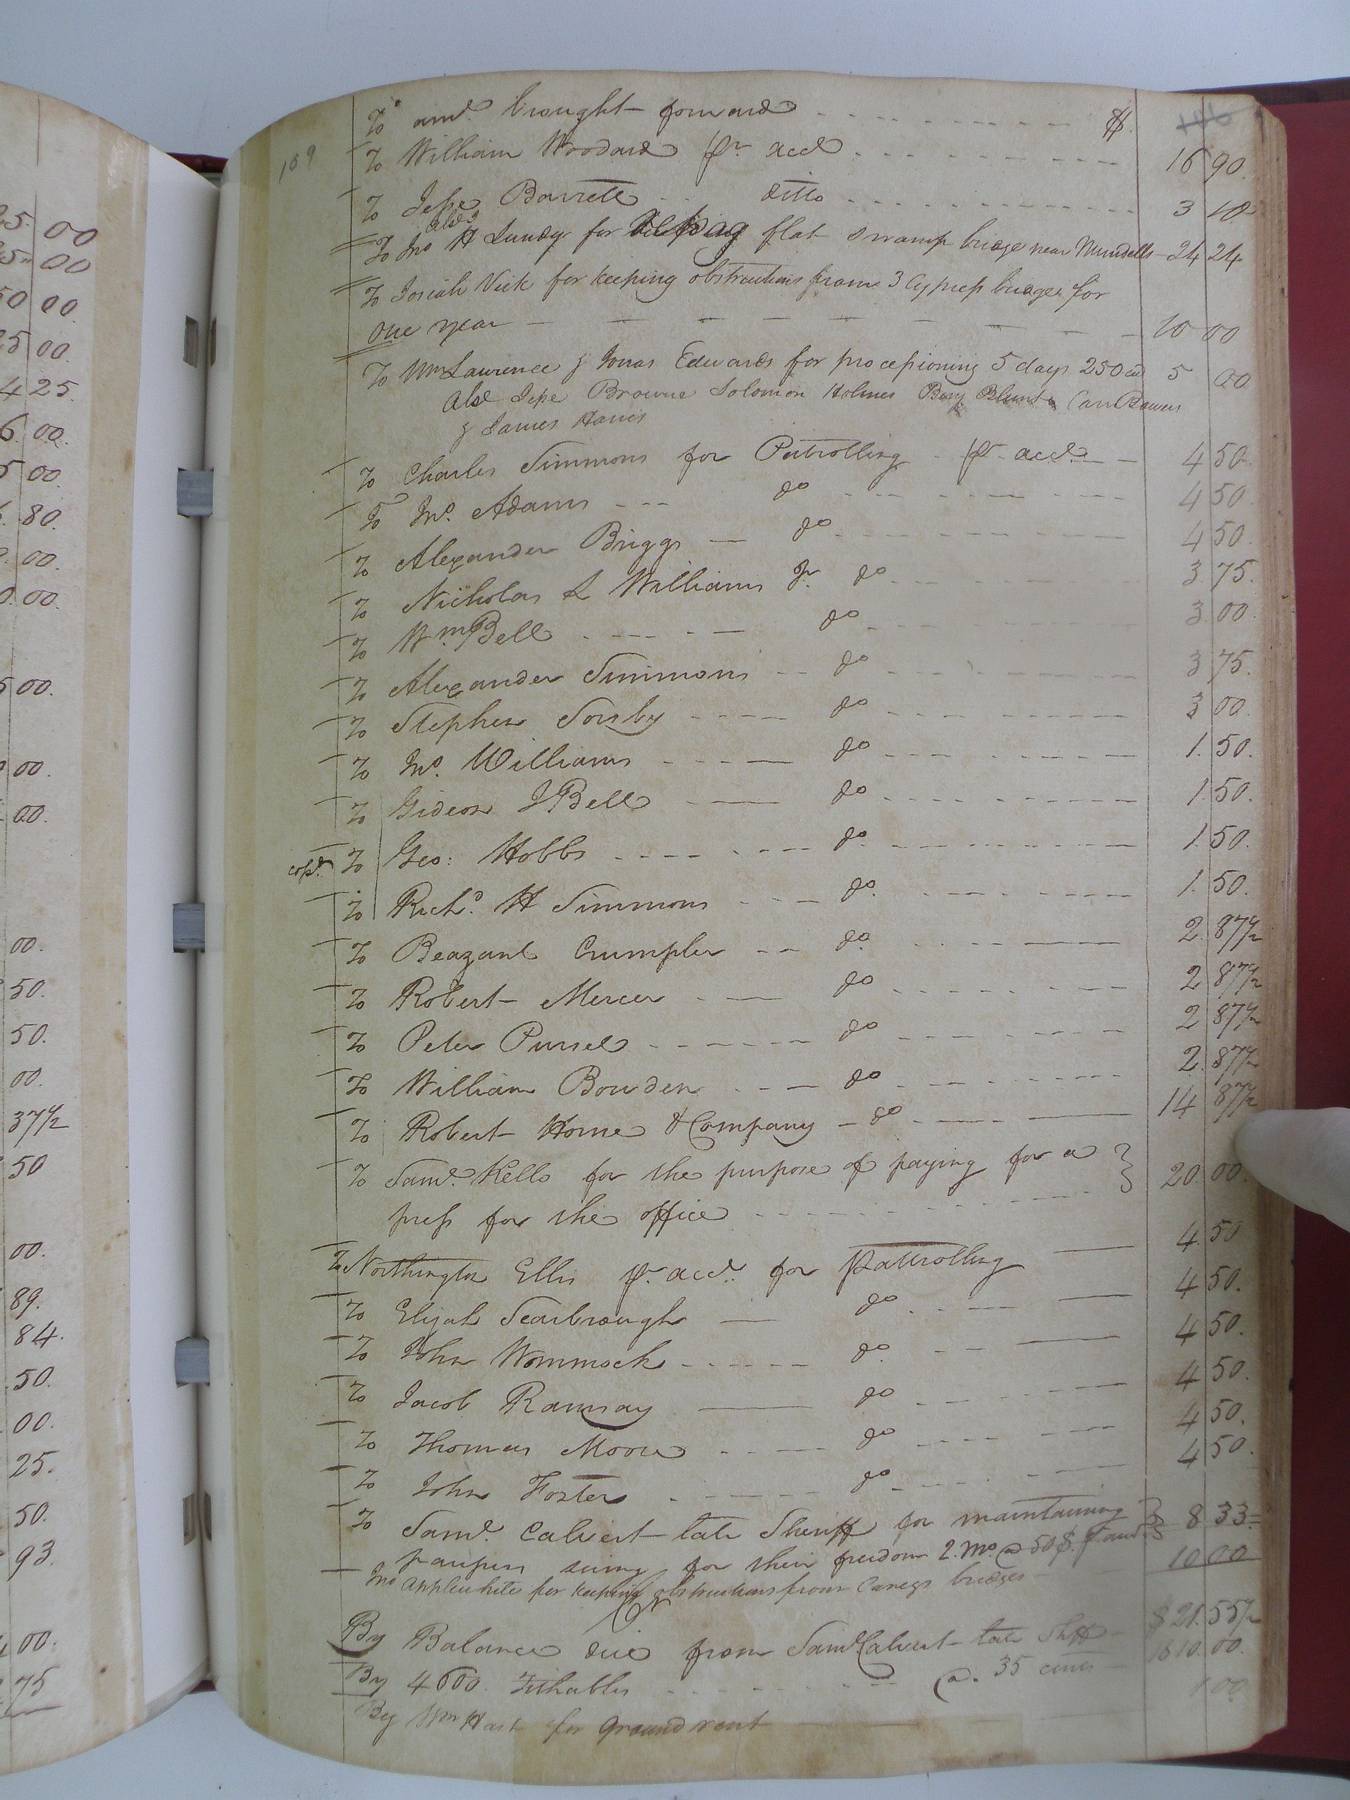 25. 00
25 00
50 00
25 00.
4 25.
6. 00.
5 00.
80.
00.
00.
5 00.
00.
00.
00.
50.
50.
00.
37 1/2
50
00.
89.
84.
50.
00.
25.
50.
93.
00.
75
169
To amt. brought forward $.
To William Woodard pr. acct 16 90.
To Jesse Barrett ditto 3 10
To Jno H Lundy for flat swamp bridge near Mundells 24 24
To Josiah Vick for keeping obstructions from 3 Cypress bridges for
One year 10 00
To Wm Lawrence & Jonas Edwards for processioning 5 days 250 5 00
also Jesse Browne Solomon Holmes Benj Blunt Carr Bowers
& James Harris
To Charles Simmons for Patrolling pr. acct. 4 50
To Jno. Adams do 4 50
To Alexander Briggs do 4 50
To Nicholas L Williams Jr. do 3 75.
To Wm Bell do 3 00
To Alexander Simmons do 3 75.
To Stephen Sorsby do 3 00
To Jno. Williams do 1. 50.
To Gideon J Bell do 1. 50.
copd. To Geo: Hobbs do. 1. 50.
To Richd. H Simmons do. 1. 50.
To Beazant Crumpler do. 2 87 1/2
To Robert Mercer do 2 87 1/2
To Peter Pursel do 2 87 1/2
To William Bowden do 2. 87 1/2
To Robert Horne & Company do 14 87 1/2
To Saml. Kello for the purpose of paying for a
press for the office 20. 00.
To Northington Ellis pr. acct. for pattrolling 4. 50
To Elijah Scarbrough do 4 50.
To John Wommack do. 4 50.
To Jacob Ramsay do 4 50.
To Thomas Moore do 4 50.
To John Foster do 4 50.
To Saml. Calvert late Sheriff for maintaining
paupers suing for their freedom 2. Mo. @ 50$. 8 33
Jno Applewhite for keeping obstructions from Careys bridges 10 00
Cr
By Balance due from Saml Calvert late Shff $ 21. 55 1/2
By 4600. Tithables @. 35 cents 1610. 00.
By Wm Hart for ground rent 1 00